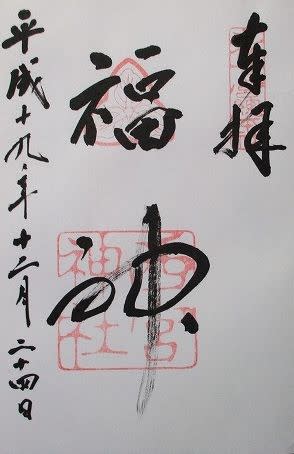 奉拝
福神
西宮
神社
平成十九年十二月二十四日